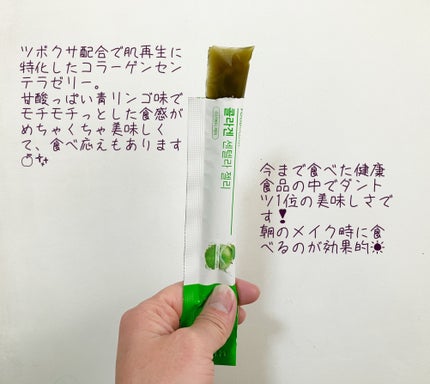 ツボクサ配合で肌再生に
特化したコラーゲンセン
テラゼリー。
甘酸っぱい青リンゴ味で
モチモチっとした食感が
めちゃくちゃ美味しく
て、食べ応えもあります
🍏✨
콜라겐
센텔라 젤리
今まで食べた健康
食品の中でダント
ツ1位の美味しさで
す❗
朝のメイク時に食
べるのが効果的☀